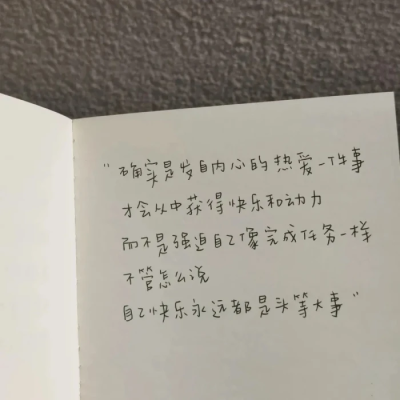 “确实是发自内心的热爱一件事
才会从中获得快乐和动力
而不是强迫自己像完成任务一样
不管怎么说
自己快乐永远都是头等大事”